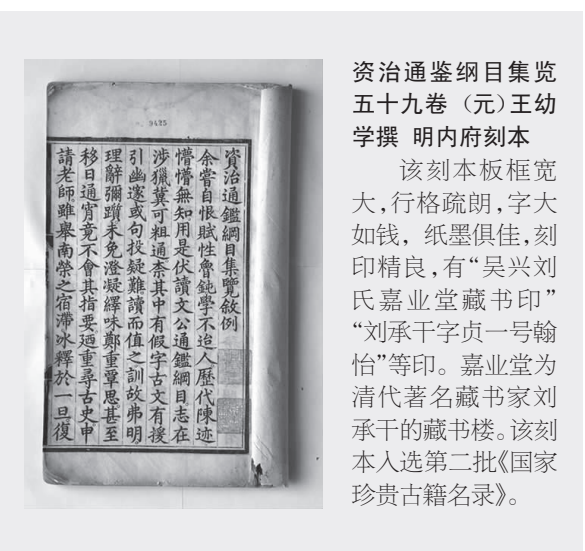 9425
資治通鑑綱目集覽敘例
余嘗自恨賦性魯鈍學不迨人歷代陳迹
懵懵無知用是伏讀文公通鑑綱目志在
涉獵冀可粗通柰其中有假字古文有援
引幽邃或句投疑難讀而值之訓故弗明
理辭彌躓未免澄凝繹味鄭重覃思甚至
移日通宵竟不會其指要廼重尋古史申
請老師雖舉南榮之宿滯冰釋於一旦復
资治通鉴纲目集览
五十九卷（元）王幼
学撰 明内府刻本
该刻本板框宽
大，行格疏朗，字大
如钱，纸墨俱佳，刻
印精良，有“吴兴刘
氏嘉业堂藏书印”
“刘承干字贞一号翰
怡”等印。嘉业堂为
清代著名藏书家刘
承干的藏书楼。该刻
本入选第二批《国家
珍贵古籍名录》。